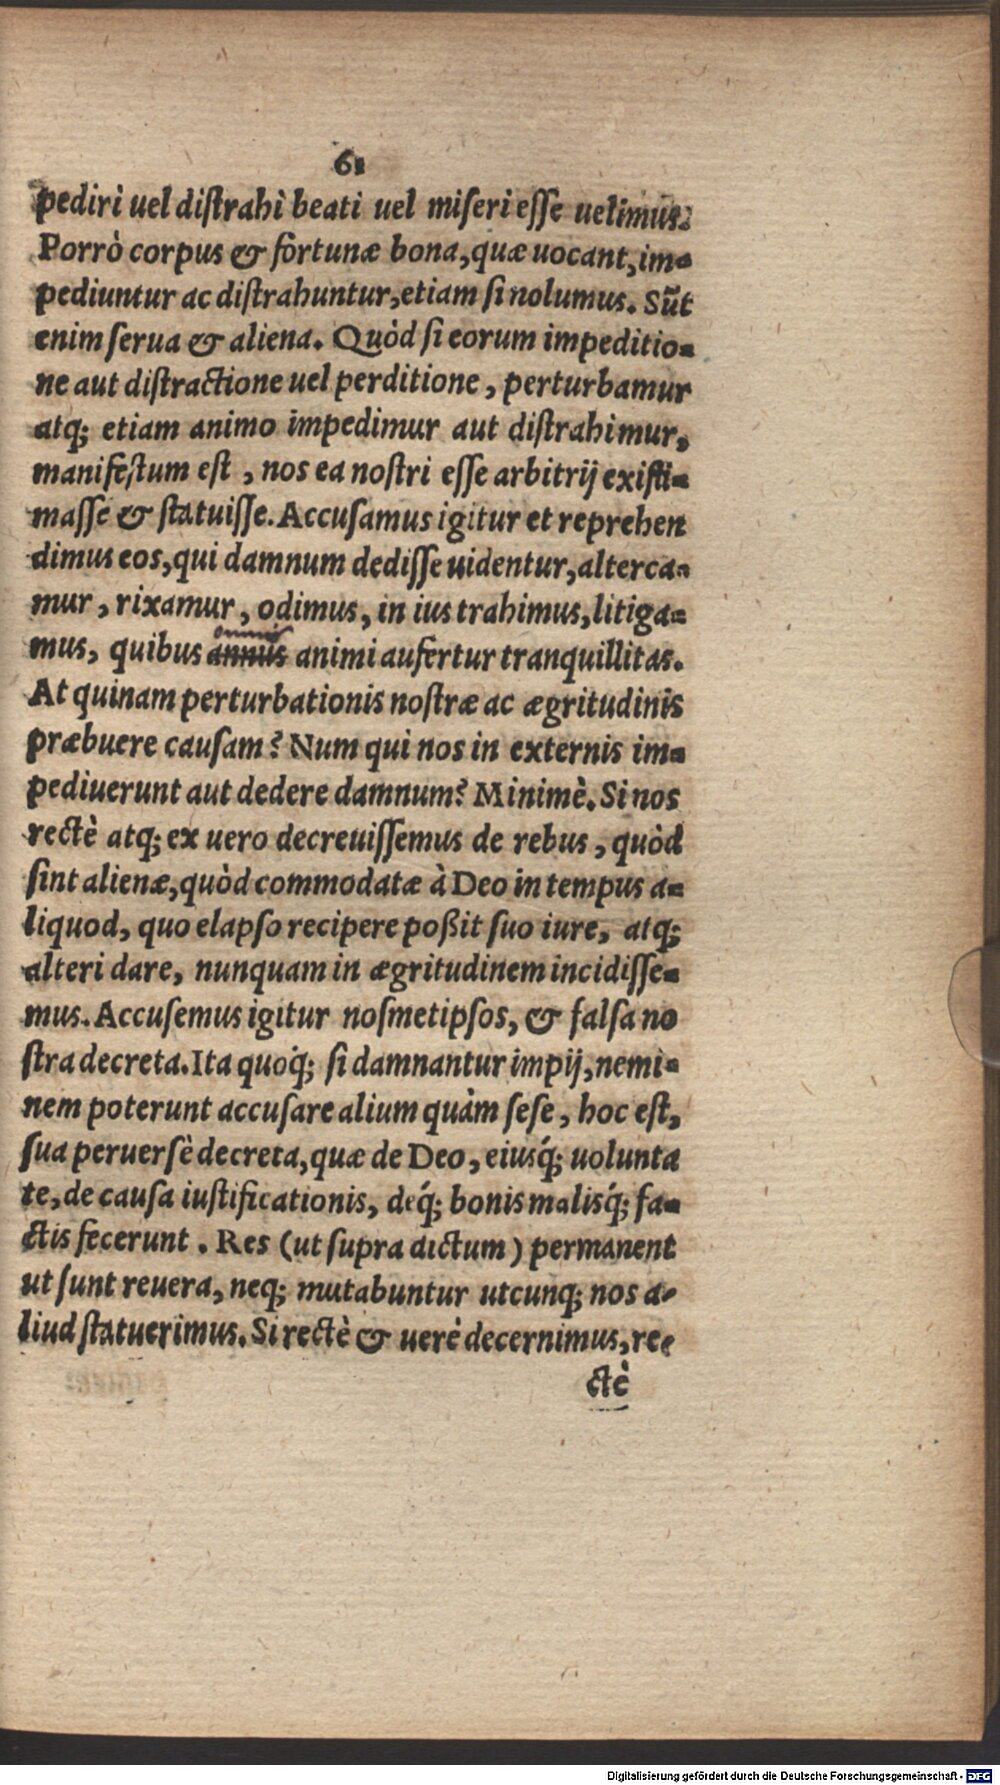 61
pediri uel distrahi beati uel miseri esse uelimus.
Porrò corpus & fortunæ bona, quæ uocant, im-
pediuntur ac distrahuntur, etiam si nolumus. Sũt
enim serua & aliena. Quòd si eorum impeditio-
ne aut distractione uel perditione, perturbamur
atq; etiam animo impedimur aut distrahimur,
manifestum est, nos ea nostri esse arbitrij existi-
masse & statuisse. Accusamus igitur et reprehen
dimus eos, qui damnum dedisse uidentur, alterca-
mur, rixamur, odimus, in ius trahimus, litiga-
omnis
mus, quibus annus animi aufertur tranquillitas.
At quinam perturbationis nostræ ac ægritudinis
præbuere causam? Num qui nos in externis im-
pediuerunt aut dedere damnum? Minimè. Si nos
rectè atq; ex uero decreuissemus de rebus, quòd
sint alienæ, quòd commodatæ à Deo in tempus a-
liquod, quo elapso recipere poßit suo iure, atq;
alteri dare, nunquam in ægritudinem incidisse-
mus. Accusemus igitur nosmetipsos, & falsa no
stra decreta. Ita quoq́; si damnantur impij, nemi-
nem poterunt accusare alium quàm sese, hoc est,
sua peruersè decreta, quæ de Deo, eiusq́; uolunta
te, de causa iustificationis, deq́; bonis malisq́; fa-
ctis fecerunt. Res (ut supra dictum) permanent
ut sunt reuera, neq; mutabuntur utcunq; nos a-
liud statuerimus. Si rectè & uerè decernimus, re-
ctè
Digitalisierung gefördert durch die Deutsche Forschungsgemeinschaft - DFG